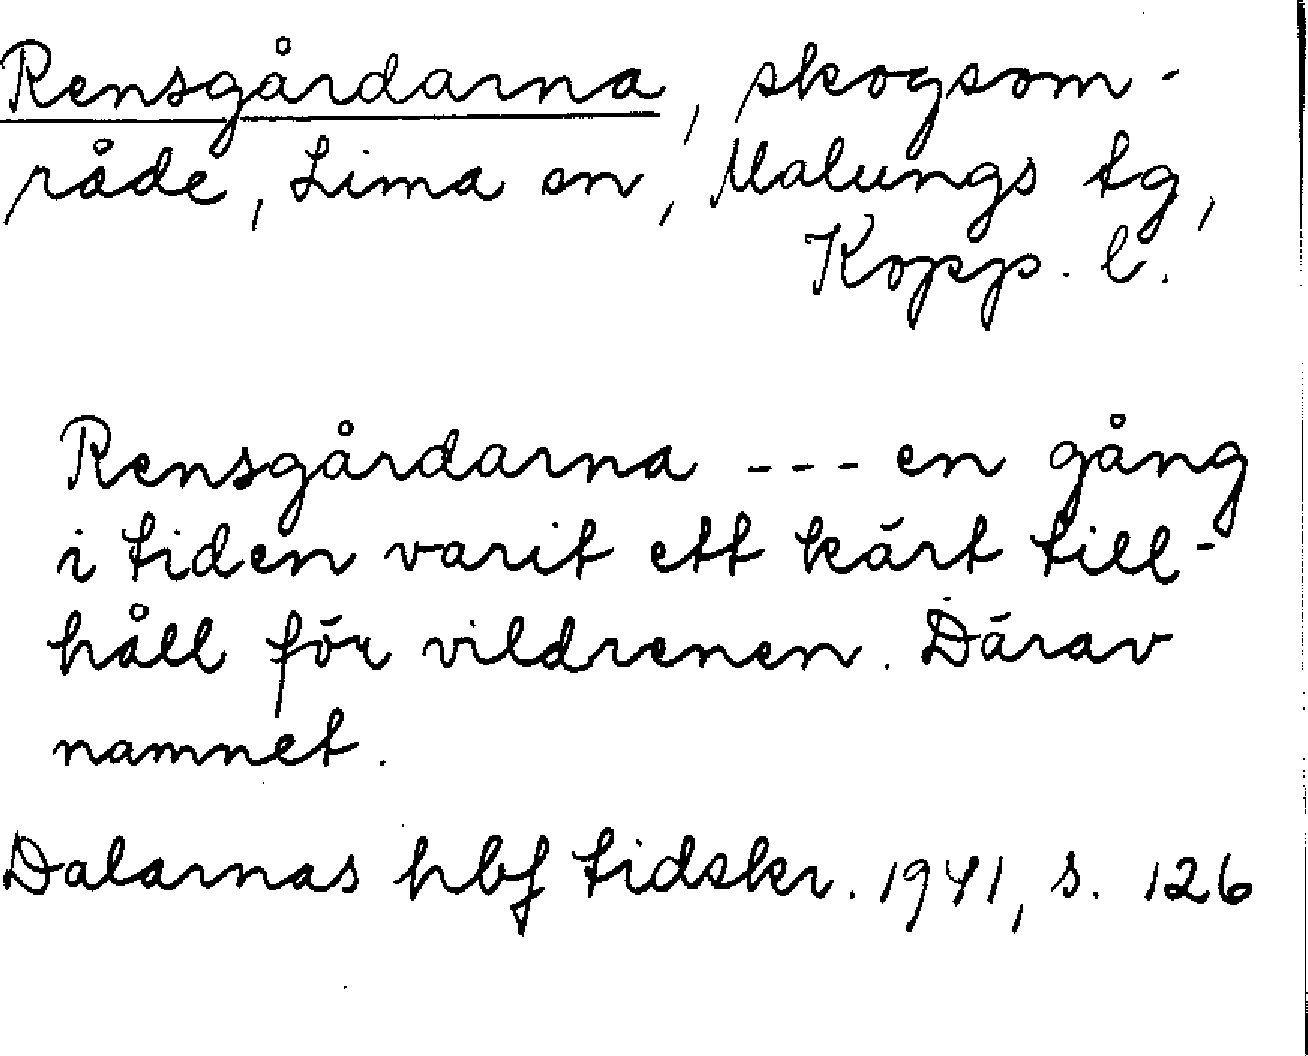 Rensgårdarna, skogsom-
råde, Lima sn, Malungs tg,
Kopp. l.
Rensgårdarna --- en gång
i tiden varit ett kärt till-
håll för vildrenen. Därav
namnet.
Dalarnas hbf tidskr. 1941, s. 126